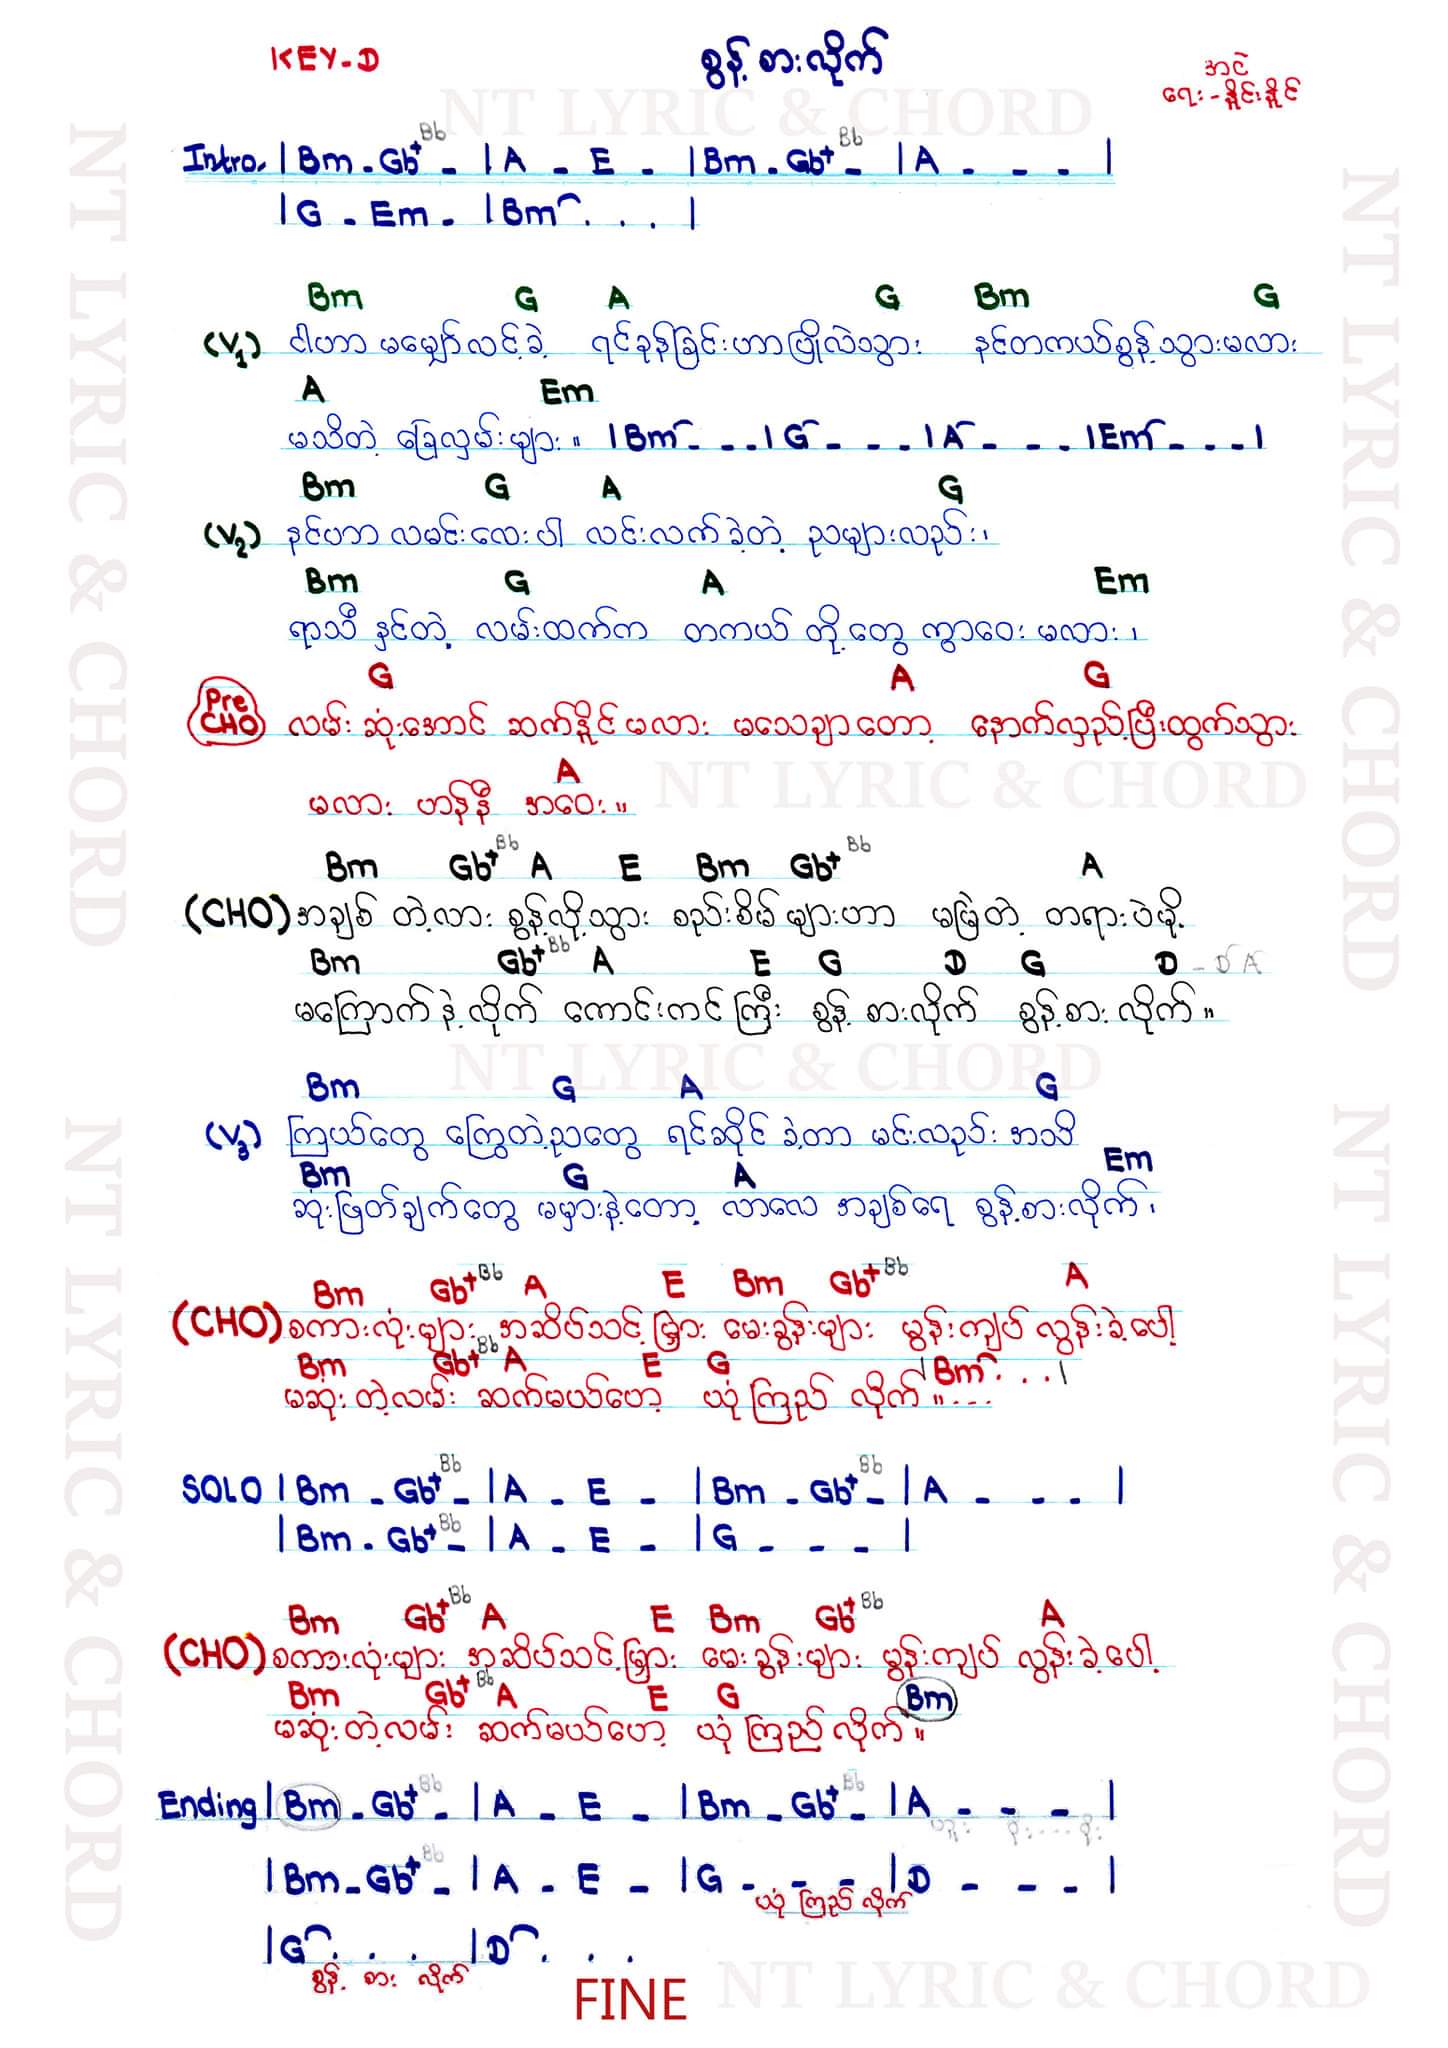 KEY-D
စွန့်စားလိုက်
အငဲ
ရေး-နှိုင်းနှိုင်
NT LYRIC & CHORD
Bb Bb
Intro. | Bm - Gb+ - | A - E - | Bm - Gb+ - | A - - - |
| G - Em - | Bm . . . |
Bm G A G Bm G
(V1) ငါဟာ မမျှော်လင့်ခဲ့ ရင်ခုန်ခြင်းဟာဖြိုလဲသွား နင်တကယ်စွန့်သွားမလား
A Em
မသိတဲ့ ခြေလှမ်းများ။ | Bm - - - | G - - - | A - - - | Em - - - |
Bm G A G
(V2) နင်ဟာ လမင်းလေးပါ လင်းလက်ခဲ့တဲ့ ညများလည်း၊
Bm G A Em
ရာသီ နှင်တဲ့ လမ်းထက်က တကယ် တို့တွေ ကွာဝေးမလား၊
G A G
Pre CHO လမ်းဆုံးအောင် ဆက်နိုင်မလား မသေချာတော့ နောက်လှည့်ပြီးထွက်သွား
A
မလား ဟန်နီ အဝေး။
NT LYRIC & CHORD
Bm Gb+ Bb A E Bm Gb+ Bb A
(CHO) အချစ် တဲ့လား စွန့်လို့သွား စည်းစိမ်များဟာ မမြဲတဲ့ တရားပဲမို့
Bm Gb+ Bb A E G D G D - D A
မကြောက်နဲ့လိုက် ကောင်းကင်ကြီး စွန့်စားလိုက် စွန့်စားလိုက်။
NT LYRIC & CHORD
Bm G A G
(V3) ကြယ်တွေ ကြွေတဲ့ညတွေ ရင်ဆိုင်ခဲ့တာ မင်းလည်းအသိ
Bm G A Em
ဆုံးဖြတ်ချက်တွေ မမှားနဲ့တော့ လာလေ အချစ်ရေ စွန့်စားလိုက်၊
Bm Gb+ Bb A E Bm Gb+ Bb A
(CHO) စကားလုံးများ အဆိပ်သင့်မြှား မေးခွန်းများ မွန်းကျပ်လွန်းခဲ့ပေါ့
Bm Gb+ Bb A E G | Bm . . . |
မဆုံးတဲ့လမ်း ဆက်မယ်ဟေ့ ယုံကြည်လိုက်။ - - -
Bb Bb
SOLO | Bm - Gb+ - | A - E - | Bm - Gb+ - | A - - - |
| Bm - Gb+ Bb - | A - E - | G - - - |
Bm Gb+ Bb A E Bm Gb+ Bb A
(CHO) စကားလုံးများ အဆိပ်သင့်မြှား မေးခွန်းများ မွန်းကျပ်လွန်းခဲ့ပေါ့
Bm Gb+ Bb A E G Bm
မဆုံးတဲ့လမ်း ဆက်မယ်ဟေ့ ယုံကြည်လိုက်။
Ending | Bm - Gb+ Bb - | A - E - | Bm - Gb+ Bb - | A - - - |
| Bm - Gb+ Bb - | A - E - | G - - - | D - - - |
ယုံကြည်လိုက်
| G . . . | D . . .
စွန့် စား လိုက်
FINE
NT LYRIC & CHORD
NT LYRIC & CHORD
NT LYRIC & CHORD
NT LYRIC & CHORD
NT LYRIC & CHORD